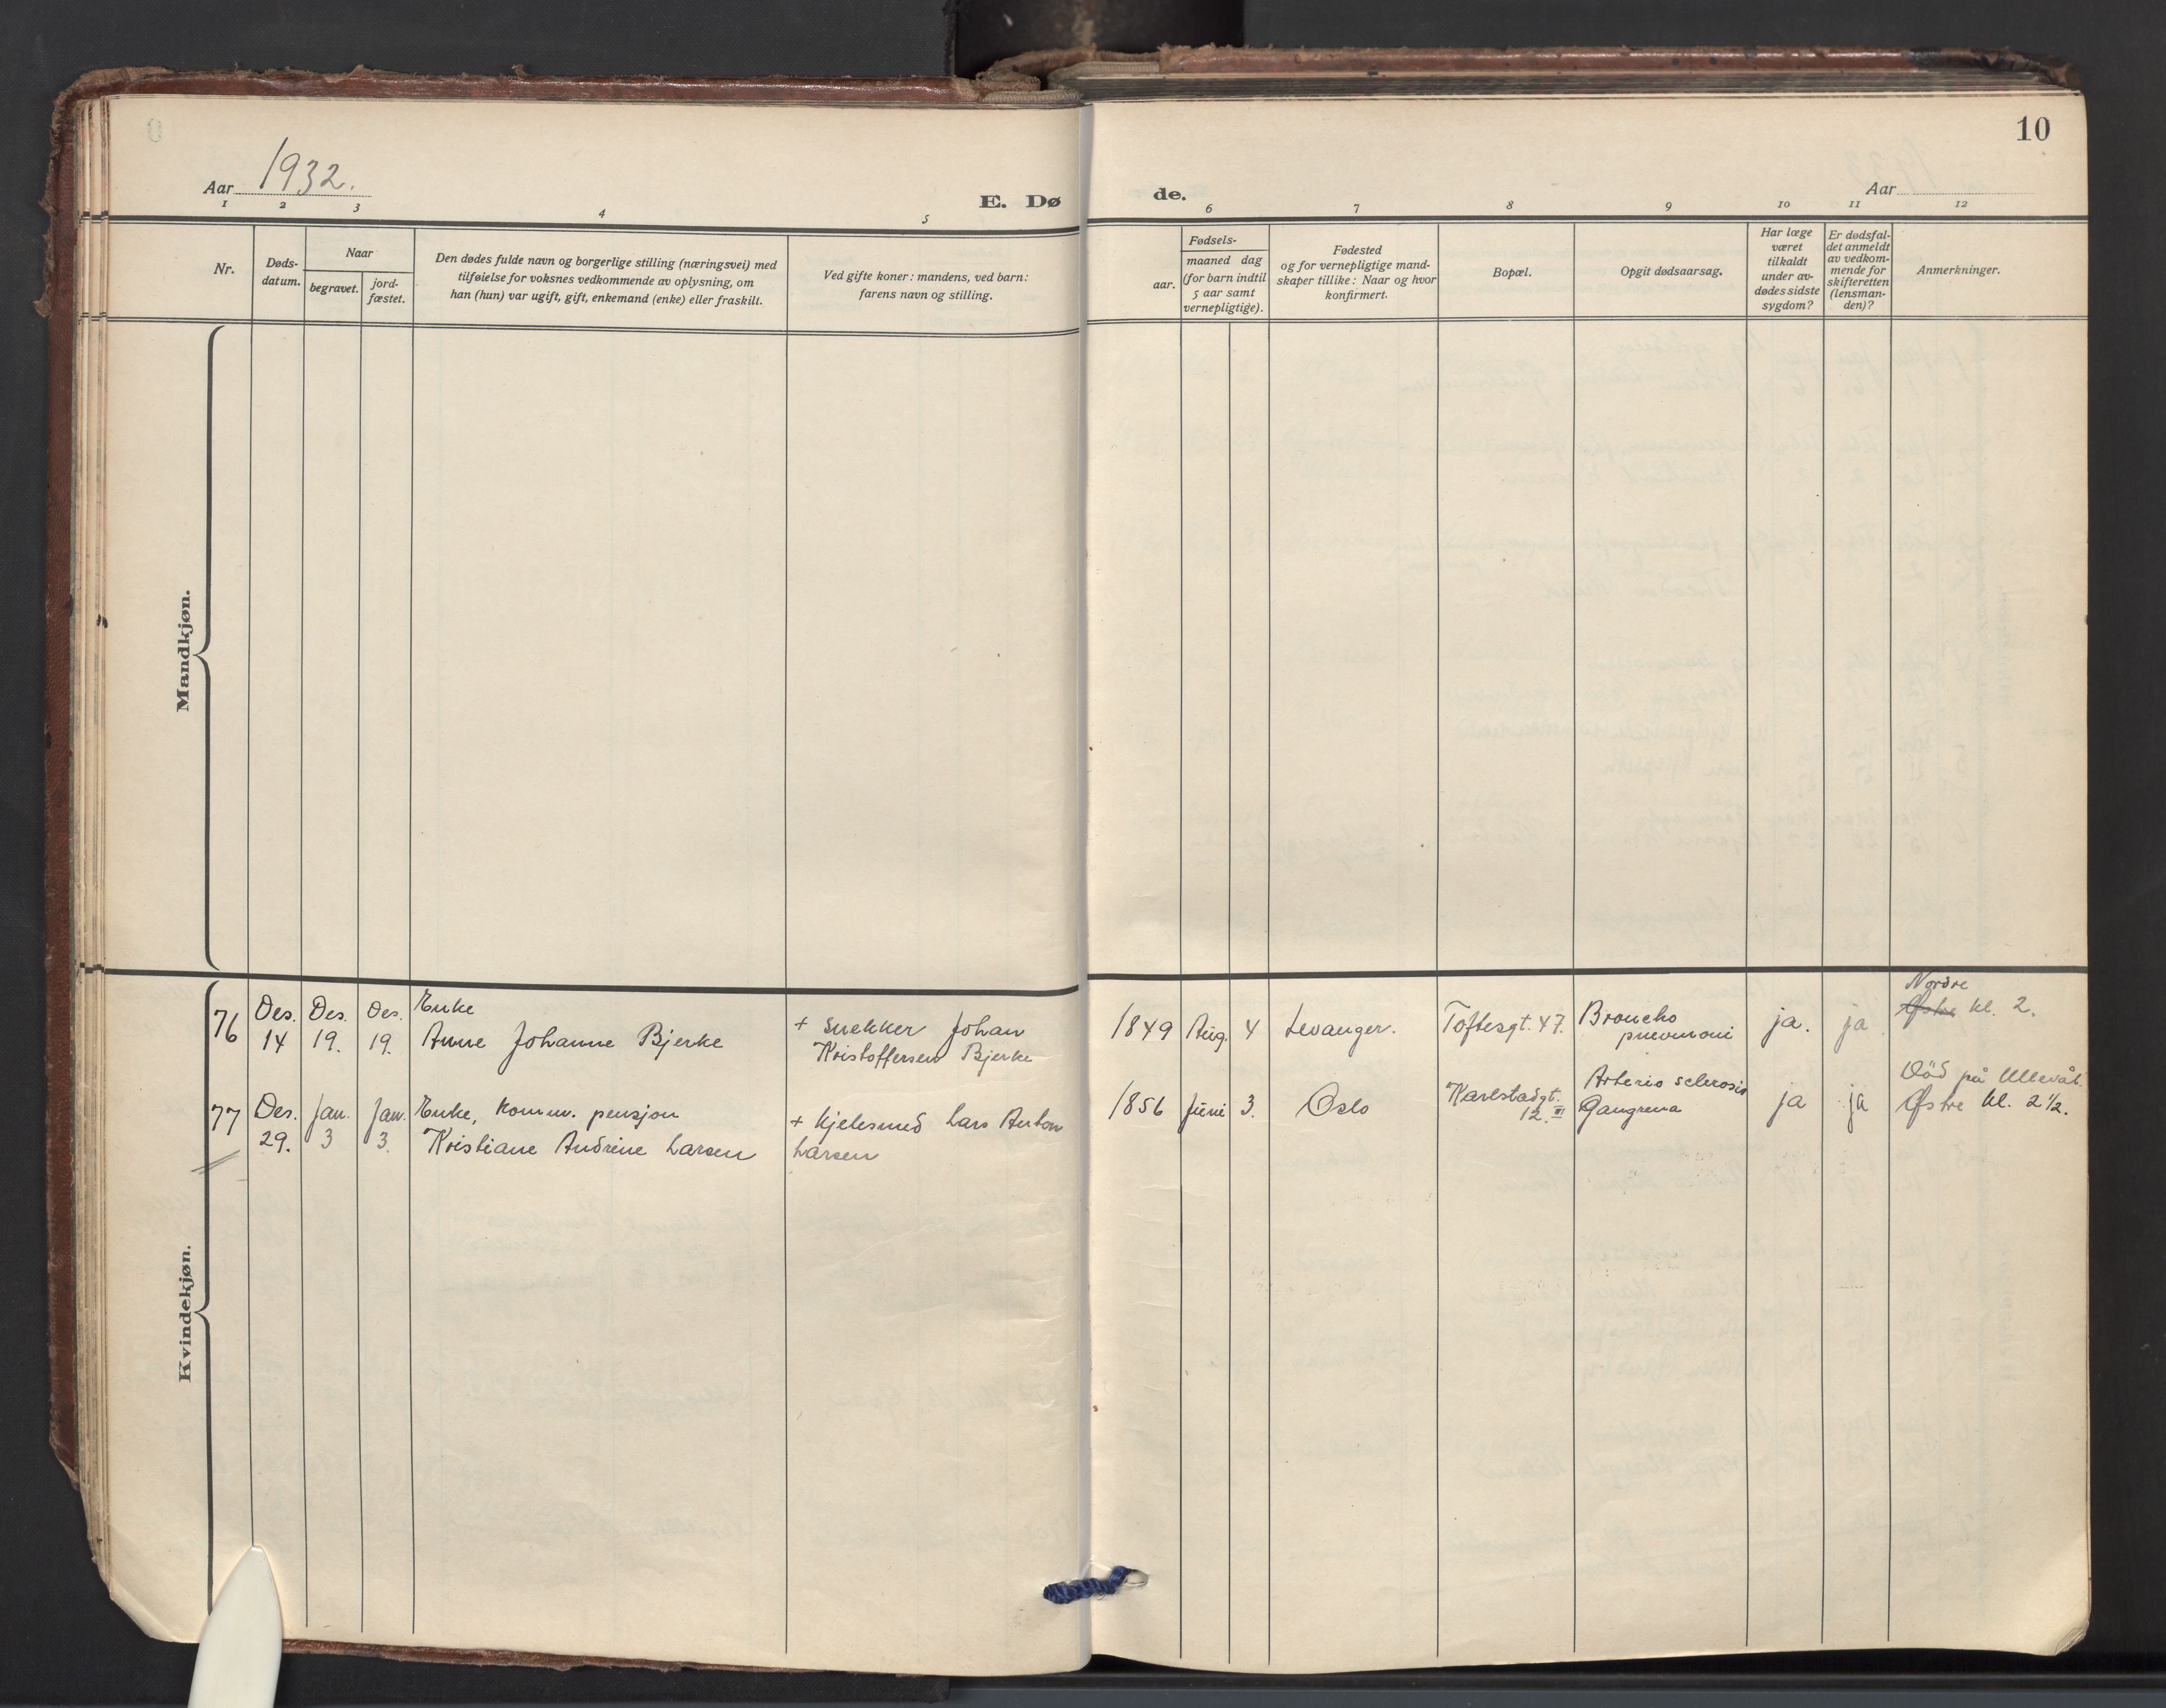 10
Aar 1932.
E. Døde.
Aar
1 2 3 4 5 6 7 8 9 10 11 12
Nr.
Døds-
datum.
Naar
begravet.
jord-
fæstet.
Den dødes fulde navn og borgerlige stilling (næringsvei) med
tilføielse for voksnes vedkommende av oplysning, om
han (hun) var ugift, gift, enkemand (enke) eller fraskilt.
Ved gifte koner: mandens, ved barn:
farens navn og stilling.
Fødsels-
aar.
maaned dag
(for barn indtil
5 aar samt
vernepligtige).
Fødested
og for vernepligtige mand-
skaper tillike: Naar og hvor
konfirmert.
Bopæl.
Opgit dødsaarsag.
Har læge
været
tilkaldt
under av-
dødes sidste
sygdom?
Er dødsfal-
det anmeldt
av vedkom-
mende for
skifteretten
(lensman-
den)?
Anmerkninger.
Mandkjøn.
Kvindekjøn.
76
Des.
14
Des.
19.
Des.
19.
Enke
Anne Johanne Bjerke
+ Snekker Johan
Kristoffersen Bjerke
1849 Aug. 4
Levanger.
Toftesgt. 47.
Broncho
pneumoni
ja.
ja
Nordre
Østre kl. 2.
77
Des.
29.
Jan.
3
Jan.
3.
Enke, komm. pensjon
Kristiane Andrine Larsen
+ Kjelesmed Lars Anton
Larsen
1856 Juni 3.
Oslo
Karlstadgt.
12. III
Arterio sclerosis
Gangrena
ja
ja
Död på Ullevål.
Østre kl. 2 1/2.